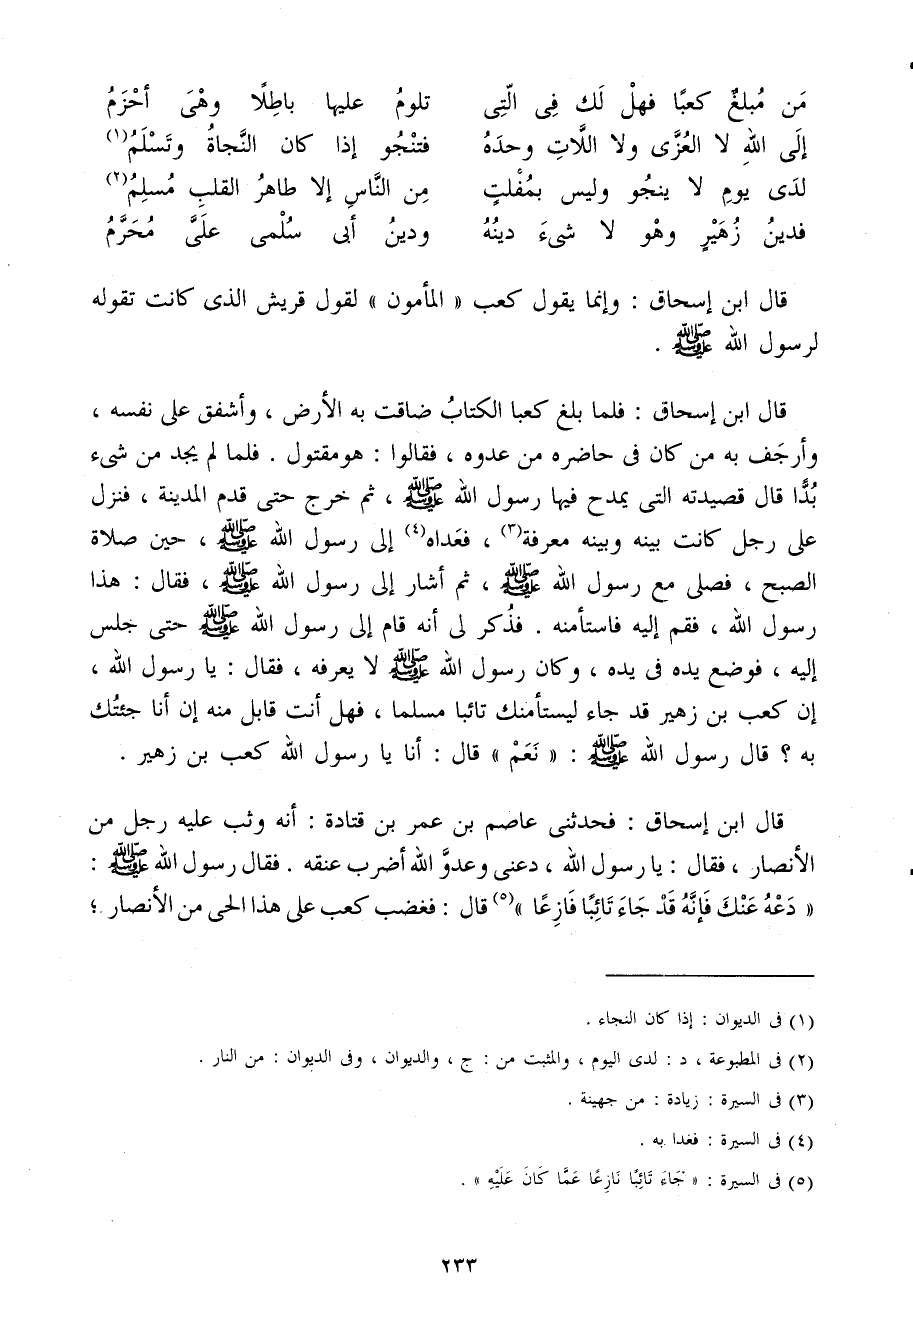 مَن مُبلغٌ كعبًا فهلْ لَك فِى الّتِى تلومُ عليها باطِلًا وهْىَ أحْزَمُ
إلَى اللهِ لا العُزَّى ولا اللَّاتِ وحدَهُ فتنْجُو إذا كان النَّجاةُ وتَسْلَمُ(١)
لدَى يومِ لا ينجُو وليس بمُفْلتٍ مِن النَّاسِ إلا طاهرُ القلبِ مُسلِمُ(٢)
فدينُ زُهَيْرٍ وهْو لا شىءَ دينُهُ ودينُ أبى سُلْمى علَىَّ مُحَرَّمُ
قال ابن إسحاق : وإنما يقول كعب « المأمون » لقول قريش الذى كانت تقوله
لرسول الله ﷺ .
قال ابن إسحاق : فلما بلغ كعبا الكتابُ ضاقت به الأرض ، وأشفق على نفسه ،
وأرجَف به من كان فى حاضره من عدوه ، فقالوا : هومقتول . فلما لم يجد من شىء
بُدًّا قال قصيدته التى يمدح فيها رسول الله ﷺ ، ثم خرج حتى قدم المدينة ، فنزل
على رجل كانت بينه وبينه معرفة(٣) ، فعَداه(٤) إلى رسول الله ﷺ ، حين صلاة
الصبح ، فصلى مع رسول الله ﷺ ، ثم أشار إلى رسول الله ﷺ ، فقال : هذا
رسول الله ، فقم إليه فاستأمنه . فذُكر لى أنه قام إلى رسول الله ﷺ حتى جلس
إليه ، فوضع يده فى يده ، وكان رسول الله ﷺ لا يعرفه ، فقال : يا رسول الله ،
إن كعب بن زهير قد جاء ليستأمنك تائبا مسلما ، فهل أنت قابل منه إن أنا جئتُك
به ؟ قال رسول الله ﷺ : « نَعَمْ » قال : أنا يا رسول الله كعب بن زهير .
قال ابن إسحاق : فحدثنى عاصم بن عمر بن قتادة : أنه وثب عليه رجل من
الأنصار ، فقال : يا رسول الله ، دعنى وعدوَّ الله أضرب عنقه . فقال رسول الله ﷺ :
« دَعْهُ عَنْكَ فَإِنَّهُ قَدْ جَاءَ تَائِبًا فَازِعًا »(٥) قال : فغضب كعب على هذا الحى من الأنصار ؛
(١) فى الديوان : إذا كان النجاء .
(٢) فى المطبوعة ، د : لدى اليوم ، والمثبت من : ج ، والديوان ، وفى الديوان : من النار .
(٣) فى السيرة : زيادة : من جهينة .
(٤) فى السيرة : فغدا به .
(٥) فى السيرة : « جَاءَ تَائِبًا نَازِعًا عَمَّا كَانَ عَلَيْهِ » .
٢٣٣